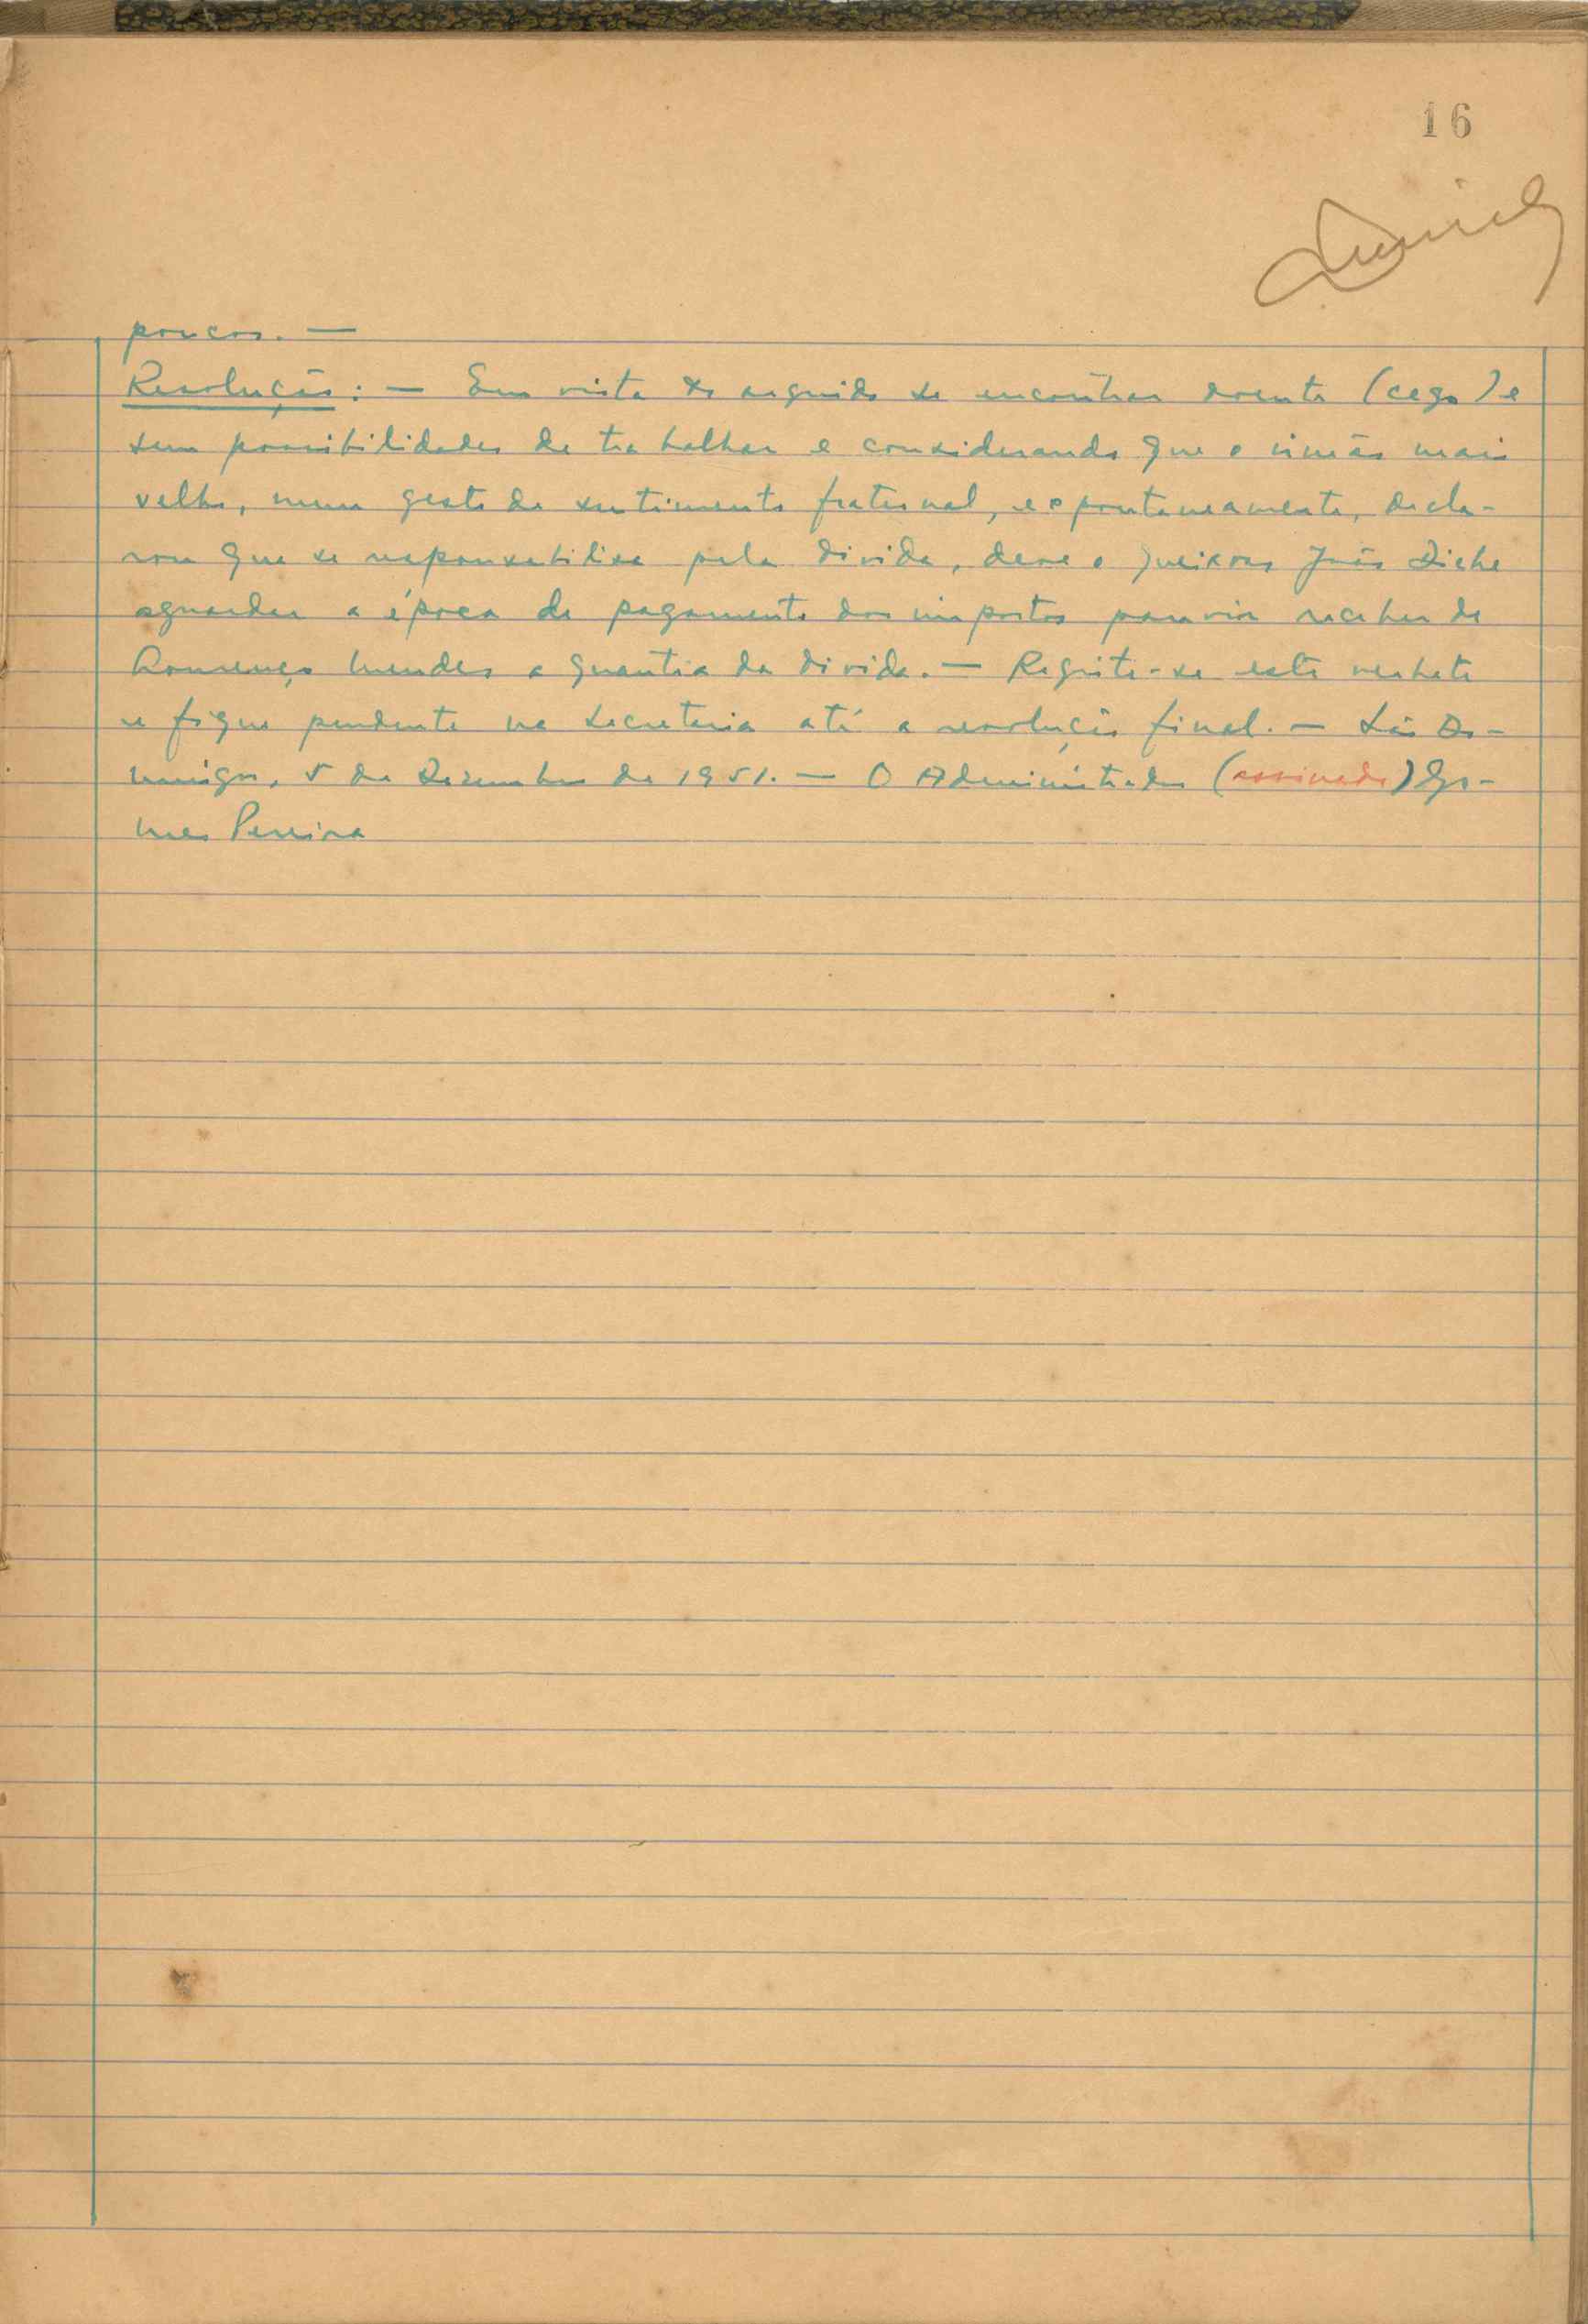 16
poucos. —
Resolução: — Em vista do arguido se encontrar doente (cego) e
sem possibilidades de trabalhar e considerando que o irmão mais
velho, num gesto de sentimento fraternal, espontaneamente, decla-
rou que se responsabilisa pela divida, deve o queixoso João
aguardar a época de pagamento dos impostos para vir receber de
Lourenço Mendes a quantia da divida. — Registe-se este verbete
e fique pendente na Secretaria até a resolução final. — São Do-
mingos, 5 de Dezembro de 1951. — O Administrador (assinado) Go-
mes Pereira